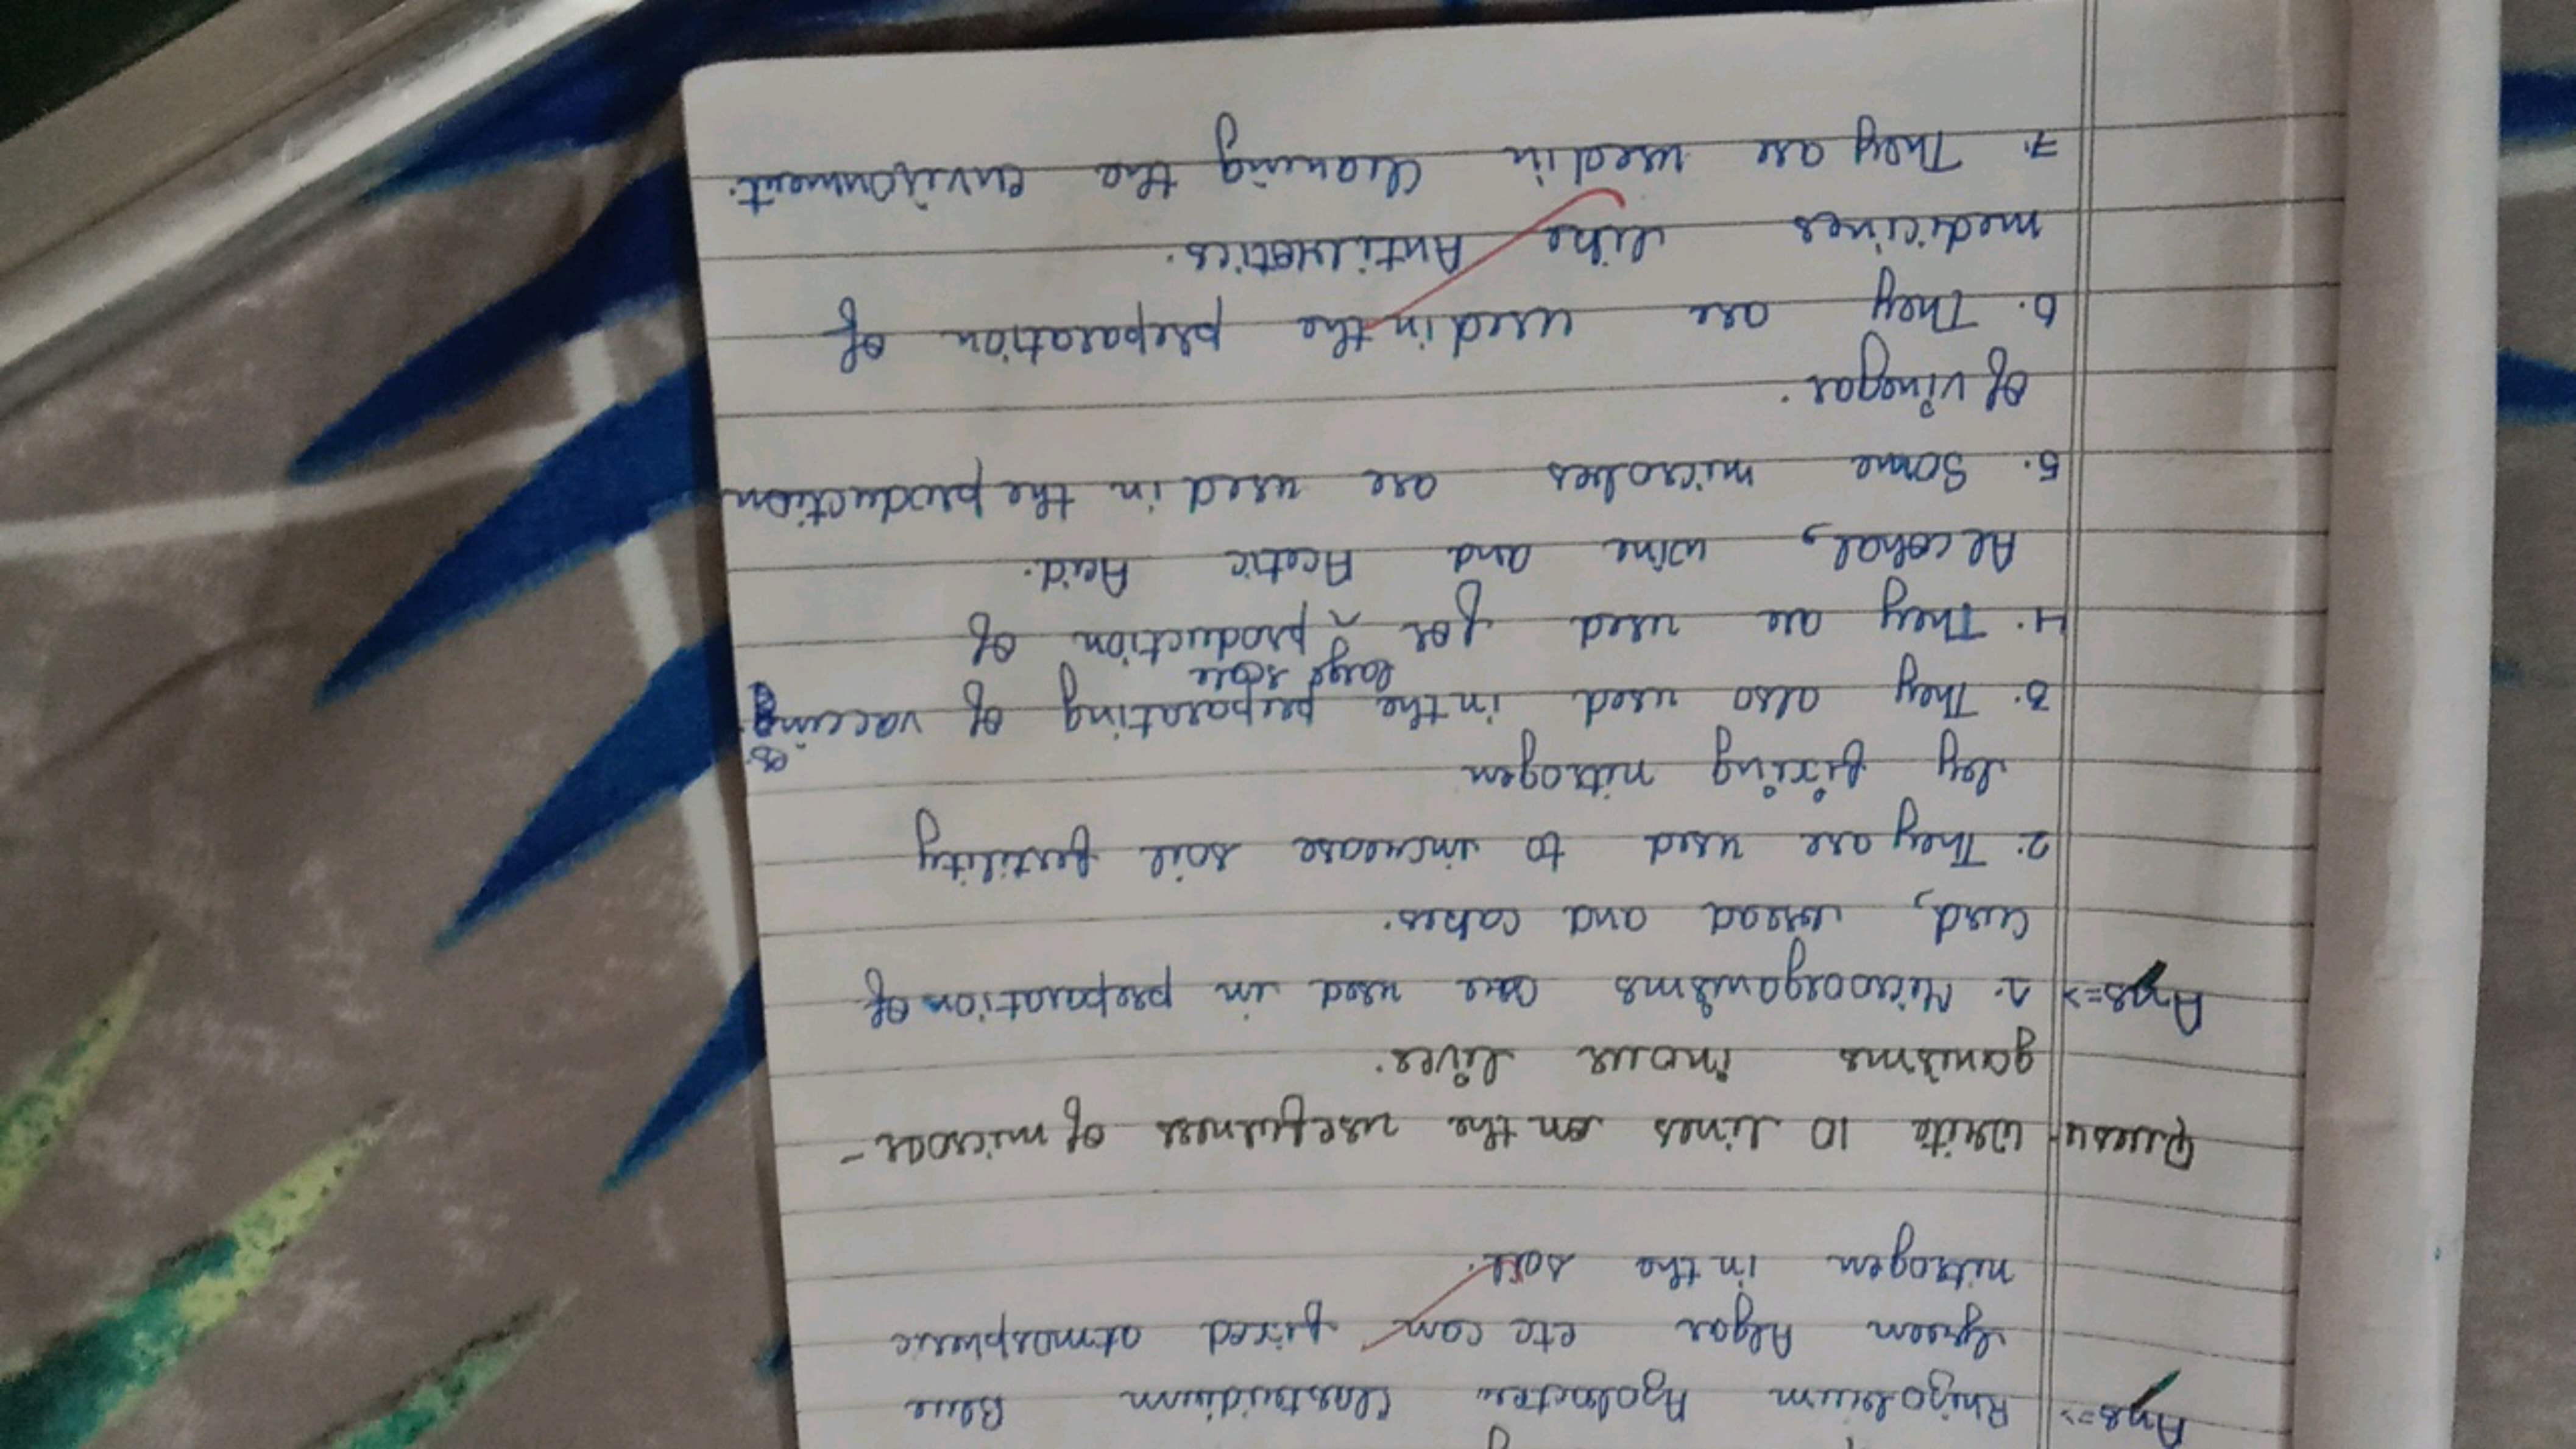 Ans=> Rhizobium Azobacter Clostridium Blue
green Algae etc can fixed atmospheric
nitrogen in the soil.
Ques4 Write 10 lines on the usefulness of microor-
ganisms in our lives.
Ans=> 1. Microorganisms are used in preparation of
curd, bread and cakes.
2. They are used to increase soil fertility
by fixing nitrogen
3. They also used in the preparating of vaccines.
large scale
4. They are used for ^ production of
Alcohal, wine and Acetic Acid.
5. Some microbes are used in the production
of vinegar.
6. They are used in the preparation of
medicines like Antibiotics.
7. They are used in cleaning the environment.